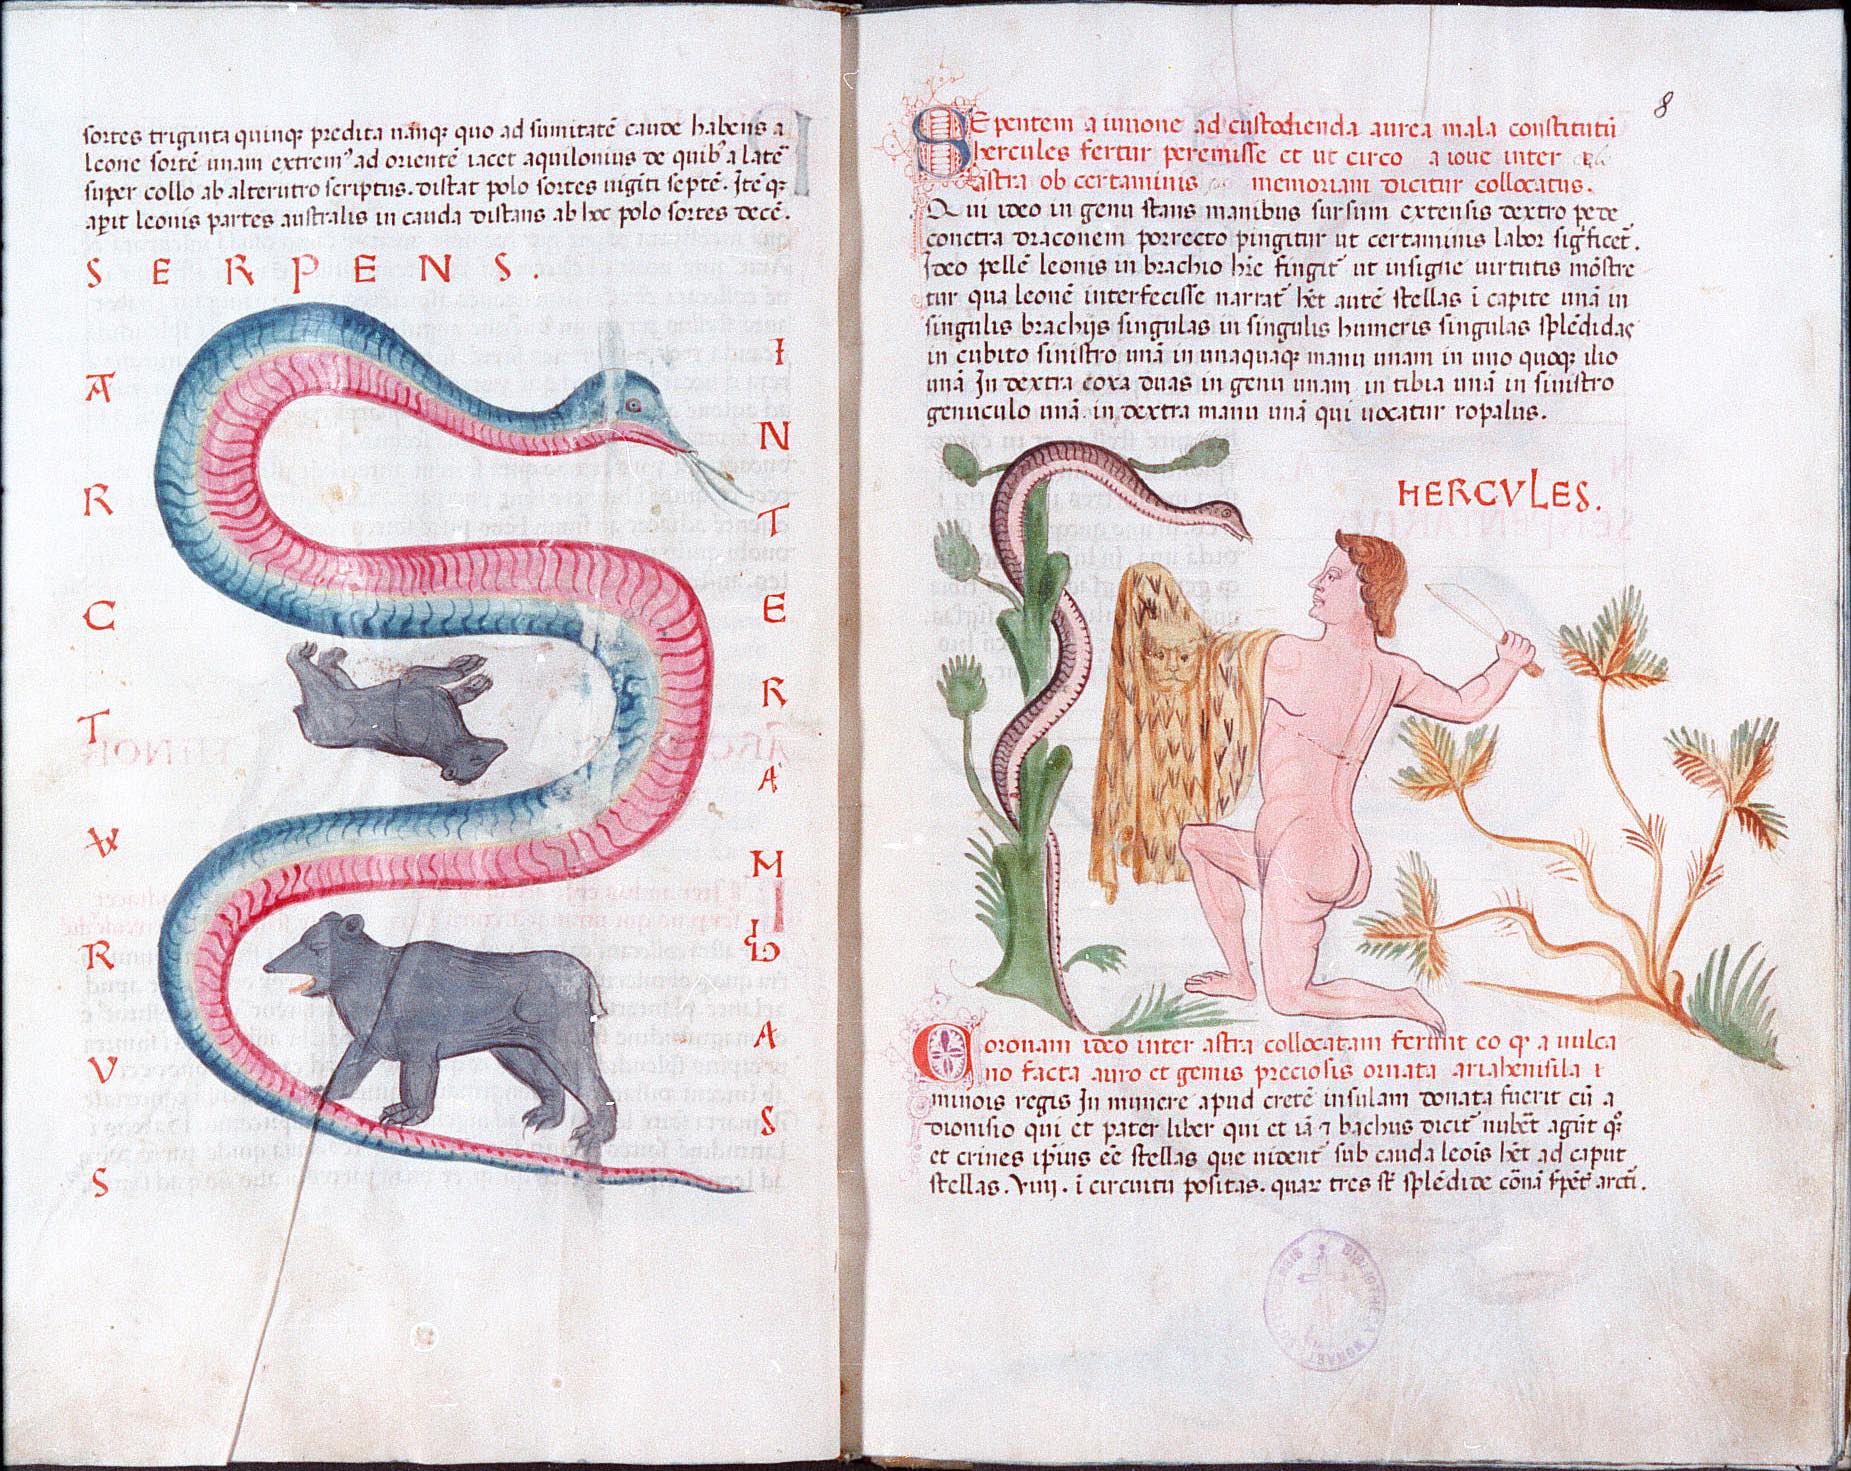 sortes triginta quinq; predita namq; quo ad sumitatē caude habens a
leone sortē unam extrem' ad orientē iacet aquilonius de quib' a latē
super collo ab alterutro scriptus. distat polo sortes uiginti septē. Itē q;
apit leonis partes australis in cauda distans ab hoc polo sortes decē.
SERPENS.
INTER AMBAS
ARCTWRVS
8
SE pentem a iunone ad custodienda aurea mala constitutū
hercules fertur peremisse et ut circo a ioue inter
astra ob certaminis memoriam dicitur collocatus.
Qui ideo in genu stans manibus sursum extensis dextro pede
conctra draconem porrecto pingitur ut certaminis labor sigficet.
Ideo pellē leonis in brachio hr̄e fingit ut insigne uirtutis mōstre
tur qua leonē interfecisse narrat hēt autē stellas ī capite unā in
singulis brachijs singulas in singulis humeris singulas splēdidas
in cubito sinistro unā in unaquaq; manu unam in uno quoq; ilio
unā In dextra coxa duas in genu unam in tibia unā in sinistro
genuculo unā. in dextra manu unā qui uocatur ropalus.
HERCVLES.
Coronam ideo inter astra collocatam ferunt eo q a uulca
no facta auro et gemis preciosis ornata ariahenisila i
minois regis In munere apud cretē insulam donata fuerit cū a
dionisio qui et pater liber qui et iā bachus dicit nubēt agūt q;
et crines ipius eē stellas que uident sub cauda leois hēt ad caput
stellas. Viiij. ī circuitu positas. quar tres st splēdide
BIBLIOTHECA